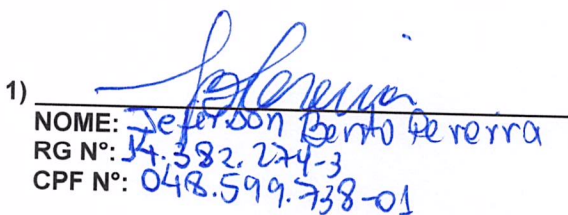 1)
NOME: Jeferson Bento Pereira
RG Nº: 14.382.274-3
CPF Nº: 048.599.738-01